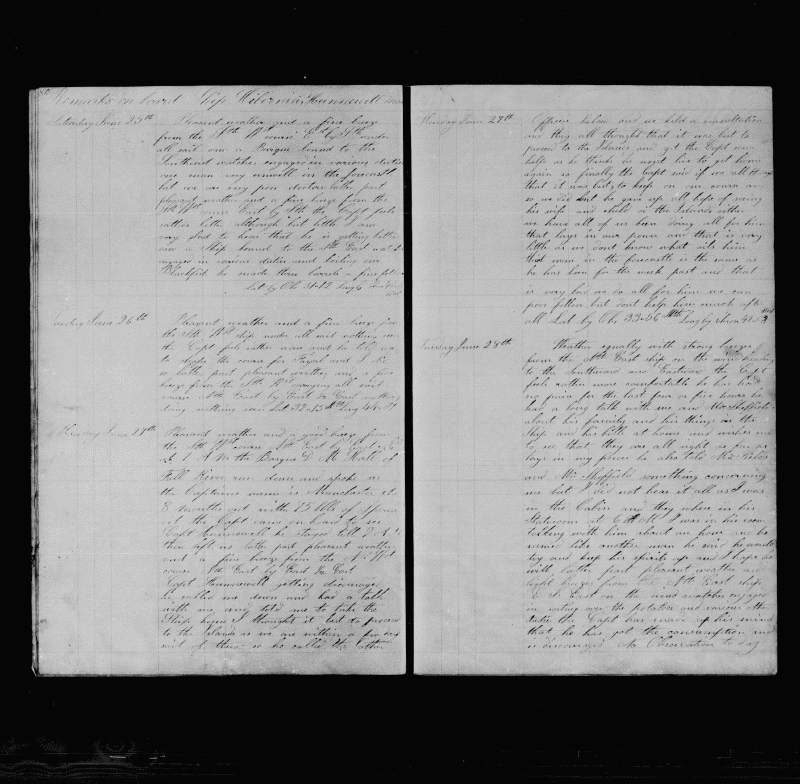 Remarks on board Ship Hibernia, Hunnewell
Saturday June 25th Pleasant weather and a fine breeze
from the Sth Wt course Et by Nth under
all sail saw a Barque bound to the
Southward watches engaged in various duties
one man very unwell in the forecastle
but we are very poor doctors latter part
pleasant weather and a fine breeze from the
Sth Wt course East by Nth the Capt feels
rather better although but little I am
very glad to hear that he is getting better
saw a Ship bound to the Nth East watch
engaged in various duties and boiling our
Blackfish he made three barrels
Lat by Obs 31-12 Long
Sunday June 26th Pleasant weather and a fine breeze from
the Sth Wt ship under all sail nothing in
the Capt feels rather worse and he told me
to make the course for Fayal and I did
so latter part pleasant weather and a fine
breeze from the Sth Wt carrying all sail
course Nth East by East ½ East watches
doing nothing Lat 32-13 Nth Long
Monday June 27th Pleasant weather and a good breeze from
the Sth Wt course Nth East by East
A M the Barque D M Hall of
Fall River run down and spoke us
the Captains name is Manchester
8 months out with 75 bbls of Sperm
oil the Capt came on board to see
Capt Hunnewell he stayed till
then left us latter part pleasant weather
and a fine breeze from the Sth West
course Nth East by East ½ East
Capt Hunnewell getting discouraged
he called me down and had a talk
with me and told me to take the
Ship home I thought it best to proceed
to the Islands as we are within a few days
sail of them so he called the other
Monday June 27th Officers below and we held a consultation
and they all thought that it was best to
proceed to the Islands and get the Capt some
help as he thinks he wont live to get home
again so finally the Capt said if we all thought
that it was best to keep on our course
so we did but he gave up all hopes of seeing
his wife and child or the Islands either
we have all of us been doing all for him
that lays in our power and that is very
little as we dont know what ails him
that man in the forecastle is the same as
he has been for the week past and that
is very bad we do all for him we can
poor fellow but dont help him much after
all Lat by Obs 33-36 Nth Long by Chron
Tuesday June 28th Weather squally with strong breezes
from the Nth East ship on the wind heading
to the Southward and Eastward the Capt
feels rather more comfortable he has had
no pain for the last four or five hours he
had a long talk with me and Mr Sheffield
about his family and his things on the
Ship and his bills at home and wishes me
to see that they are all right as far as
lays in my power he also told Mr
and Mr Sheffield something concerning
me but I did not hear it all as I was
in the Cabin and they where in his
Stateroom at 6 PM I was in his room
talking with him about an hour and he
seemed like another man he said he would
try and keep his spirits up and I hope he
will latter part pleasant weather and
light breezes from the Nth East ship
E S East on the wind watches engaged
in looking over the potatoes and various other
duties the Capt has made up his mind
that he has got the consumption and
is discouraged No Observation to day